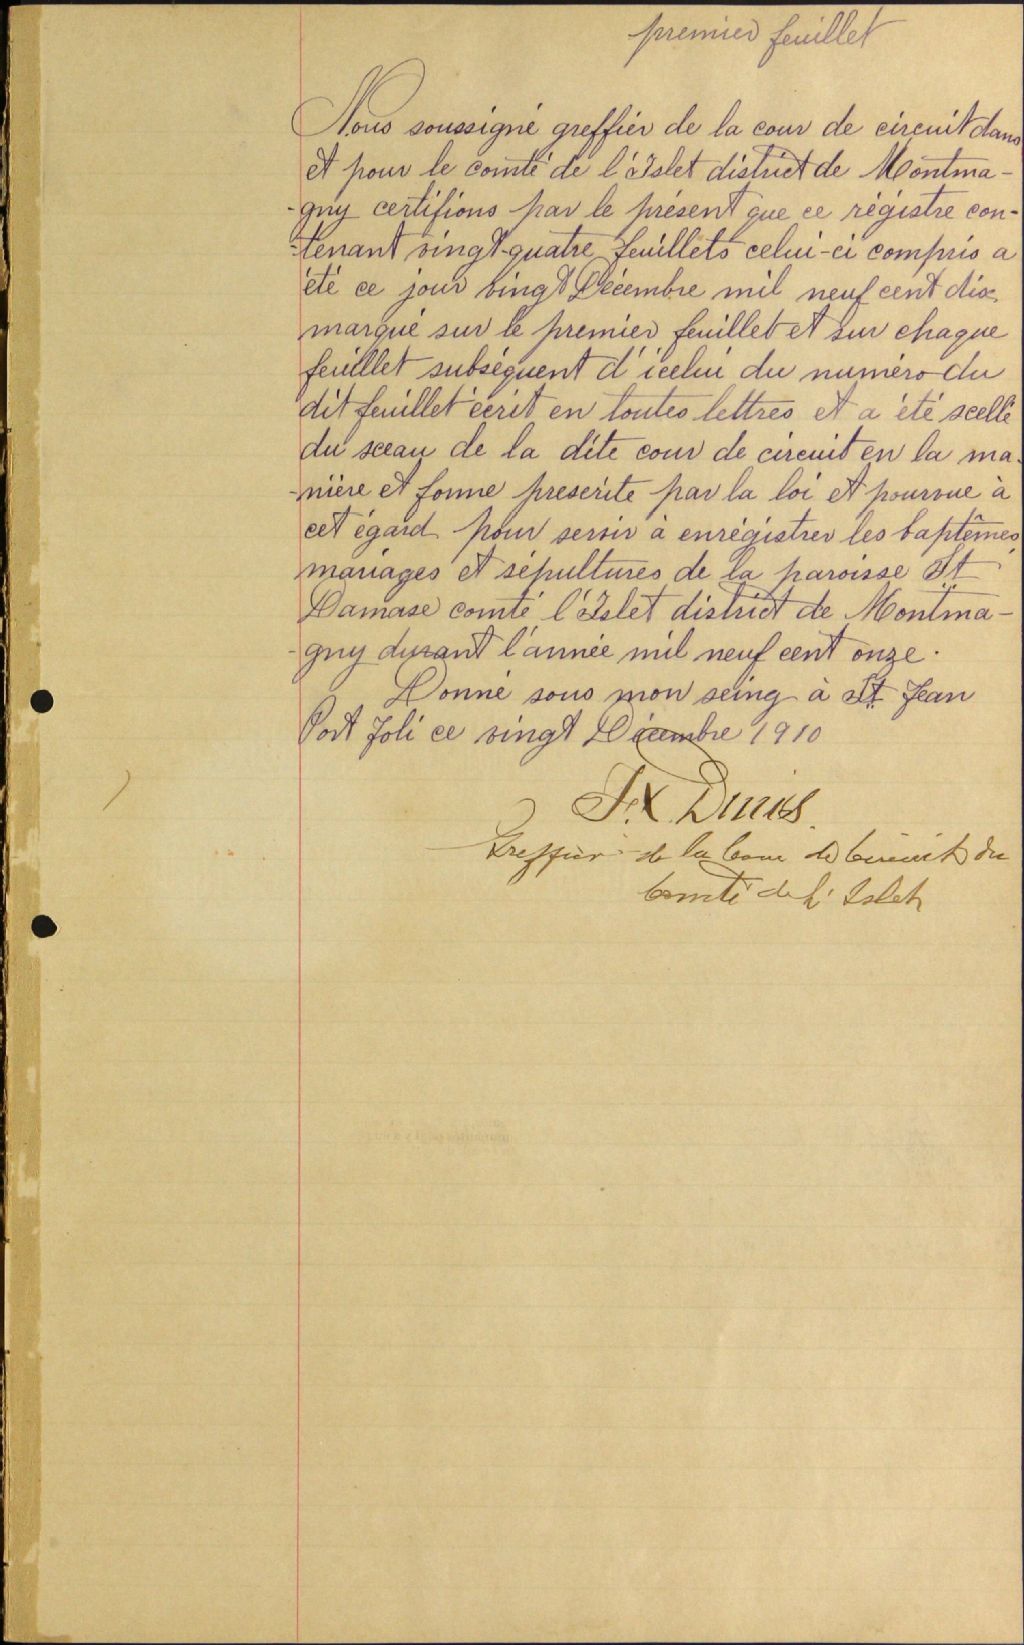 premier feuillet
Nous soussigné greffier de la cour de circuit dans
et pour le comté de l'Islet district de Montma-
-gny certifions par le présent que ce régistre con-
-tenant vingt-quatre feuillets celui-ci compris a
été ce jour vingt Décembre mil neuf cent dix
marqué sur le premier feuillet et sur chaque
feuillet subséquent d'icelui du numéro du
dit feuillet écrit en toutes lettres et a été scellé
du sceau de la dite cour de circuit en la ma-
-nière et forme prescrite par la loi et pourvue à
cet égard pour servir à enrégistrer les baptêmes,
mariages et sépultures de la paroisse St
Damase comté l'Islet district de Montma-
-gny durant l'année mil neuf cent onze.
Donné sous mon seing à St Jean
Port Joli ce vingt Décembre 1910
F. X.
Greffier de la Cour de Circuit du
Comté de L'Islet